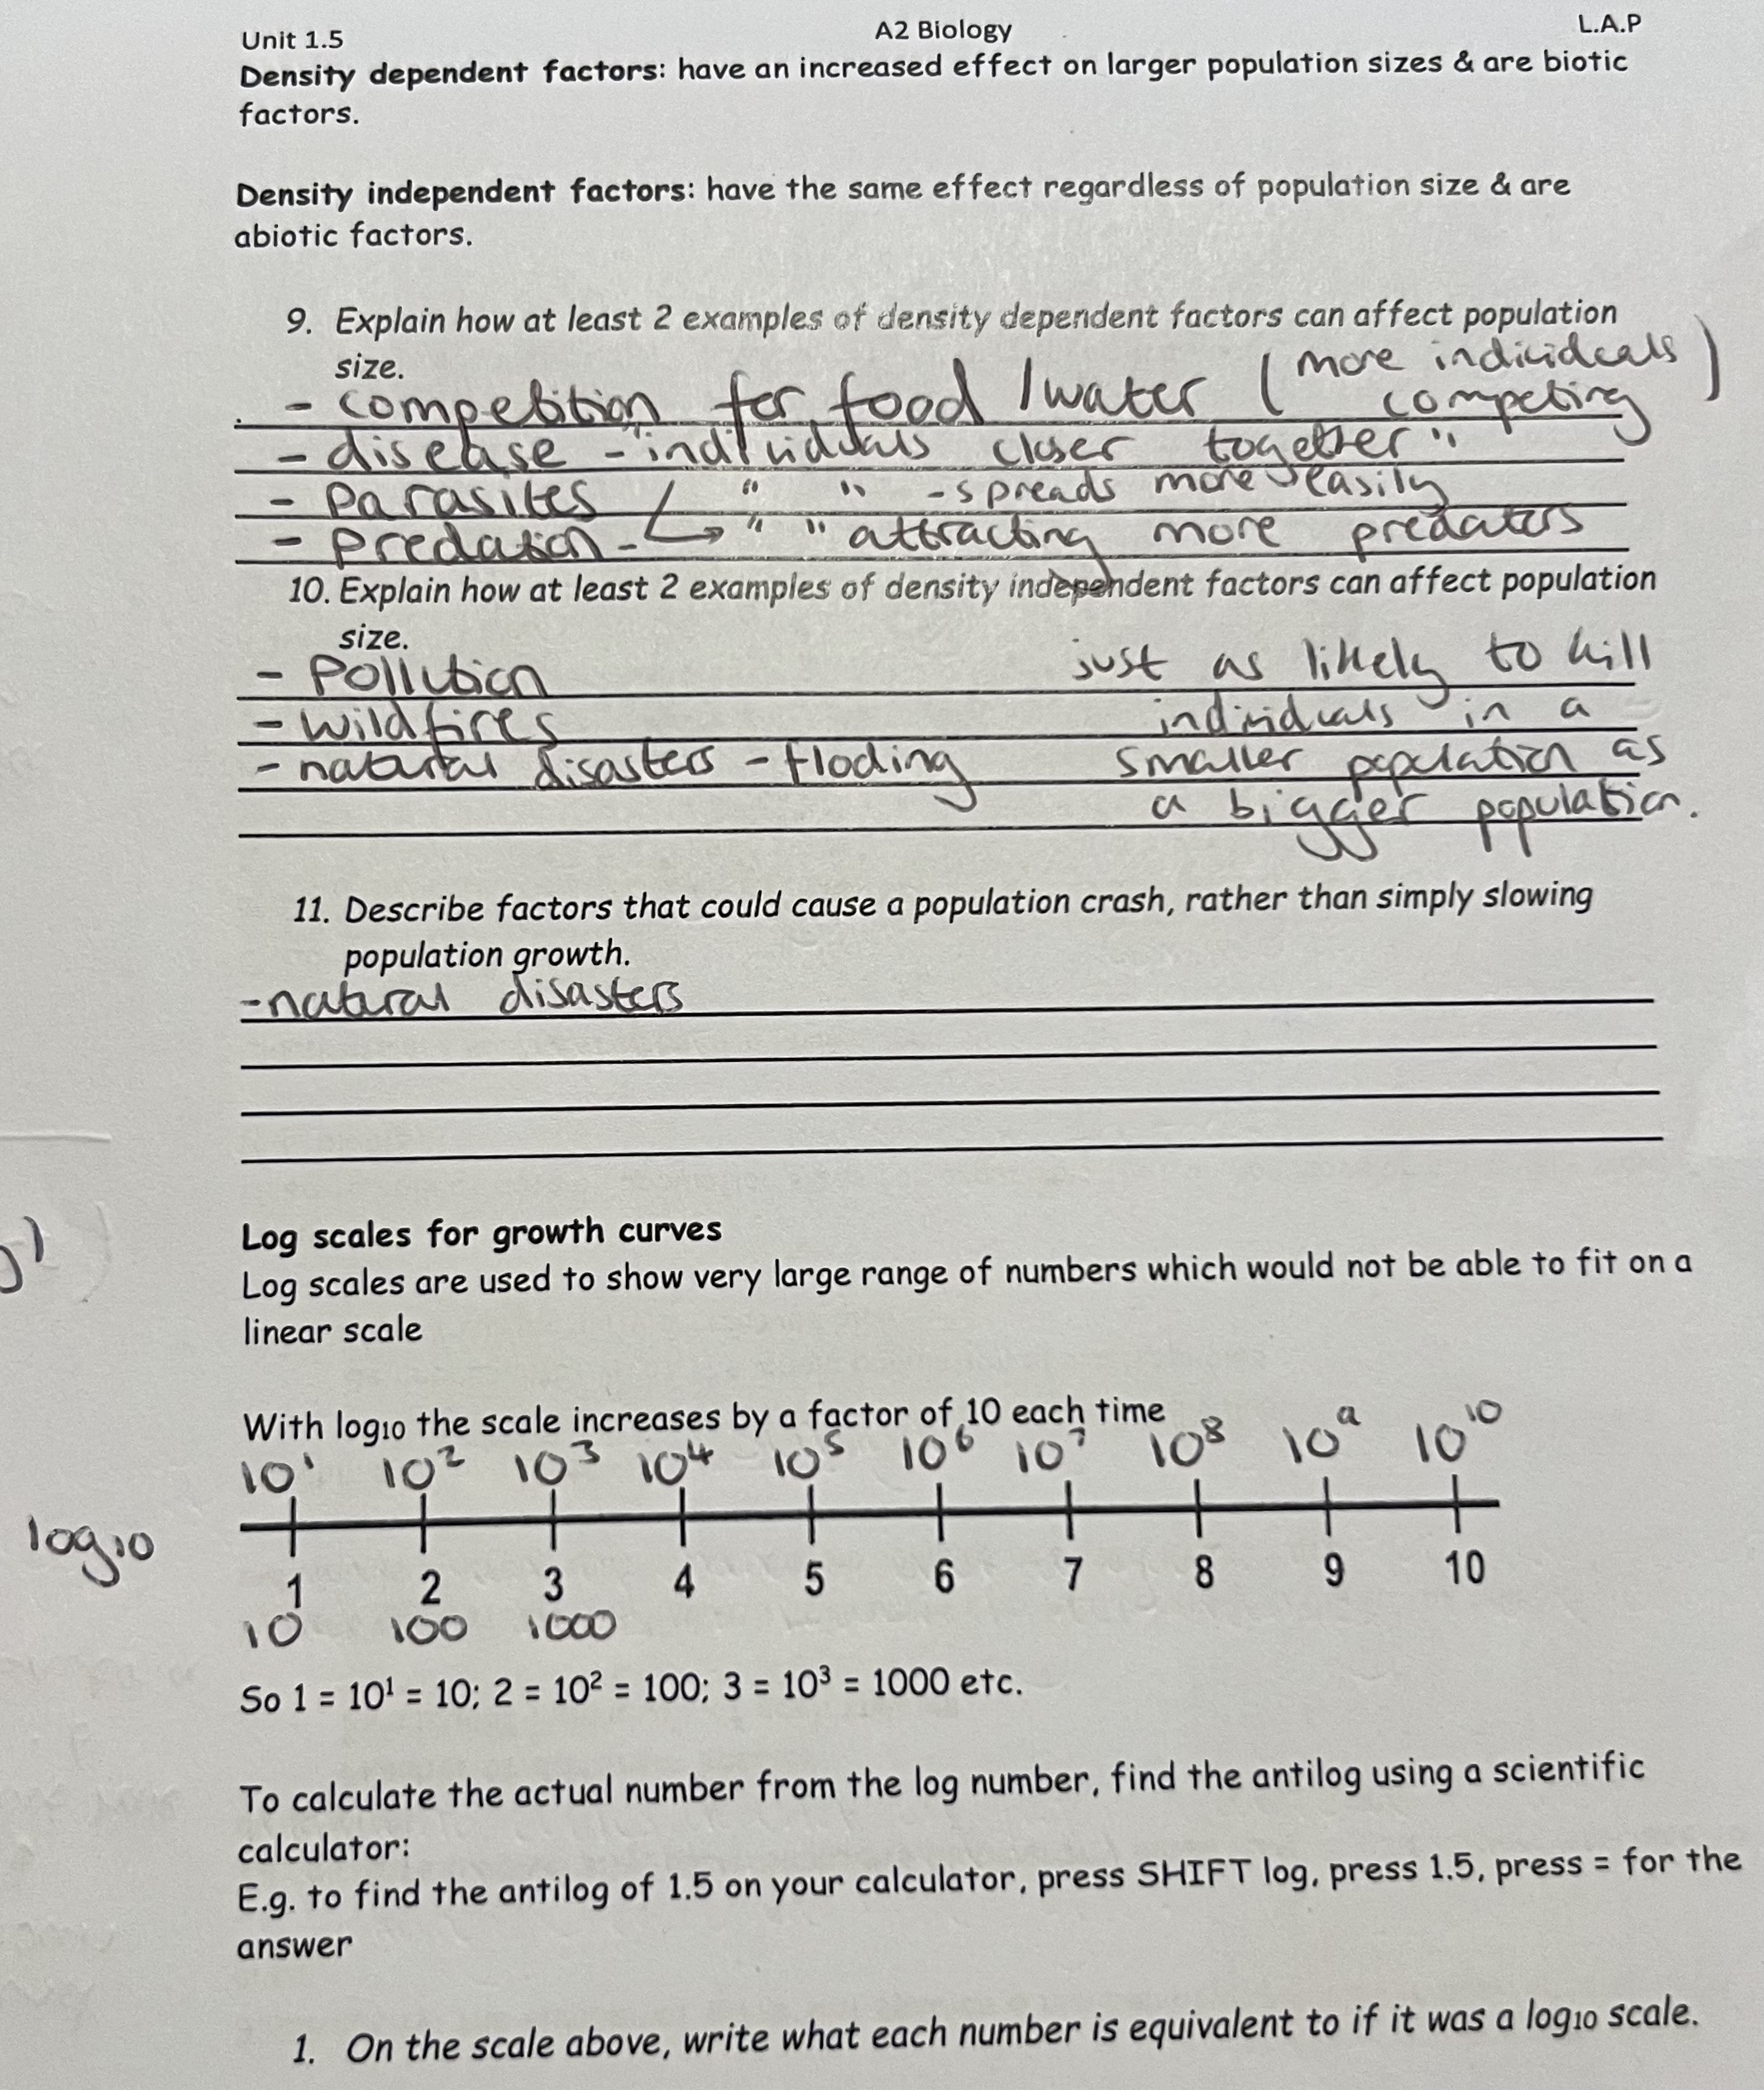 Unit 1.5 A2 Biology L.A.P
Density dependent factors: have an increased effect on larger population sizes & are biotic
factors.
Density independent factors: have the same effect regardless of population size & are
abiotic factors.
9. Explain how at least 2 examples of density dependent factors can affect population
size.
- competition for food / water ( more individuals
competing )
- disease - "individuals closer together"
- Parasites " " - spreads more easily
- Predation - " " attracting more predators
10. Explain how at least 2 examples of density independent factors can affect population
size.
- Pollution just as likely to kill
- wildfires individuals in a
- natural disasters - floding smaller population as
a bigger population.
11. Describe factors that could cause a population crash, rather than simply slowing
population growth.
- natural disasters
Log scales for growth curves
Log scales are used to show very large range of numbers which would not be able to fit on a
linear scale
With log₁₀ the scale increases by a factor of 10 each time
10¹ 10² 10³ 10⁴ 10⁵ 10⁶ 10⁷ 10⁸ 10⁹ 10¹⁰
log₁₀
1 2 3 4 5 6 7 8 9 10
10 100 1000
So 1 = 10¹ = 10; 2 = 10² = 100; 3 = 10³ = 1000 etc.
To calculate the actual number from the log number, find the antilog using a scientific
calculator:
E.g. to find the antilog of 1.5 on your calculator, press SHIFT log, press 1.5, press = for the
answer
1. On the scale above, write what each number is equivalent to if it was a log₁₀ scale.